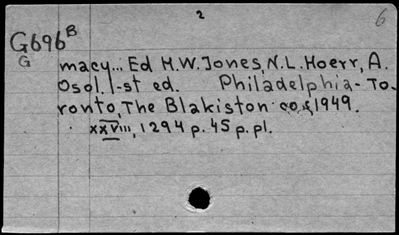 2
6
G696B
G
macy... Ed H.W. Jones, N.L. Hoerr, A.
Osol. 1-st ed. Philadelphia-To-
ronto, The Blakiston co., 1949.
xxviii, 1294 p. 45 p. pl.